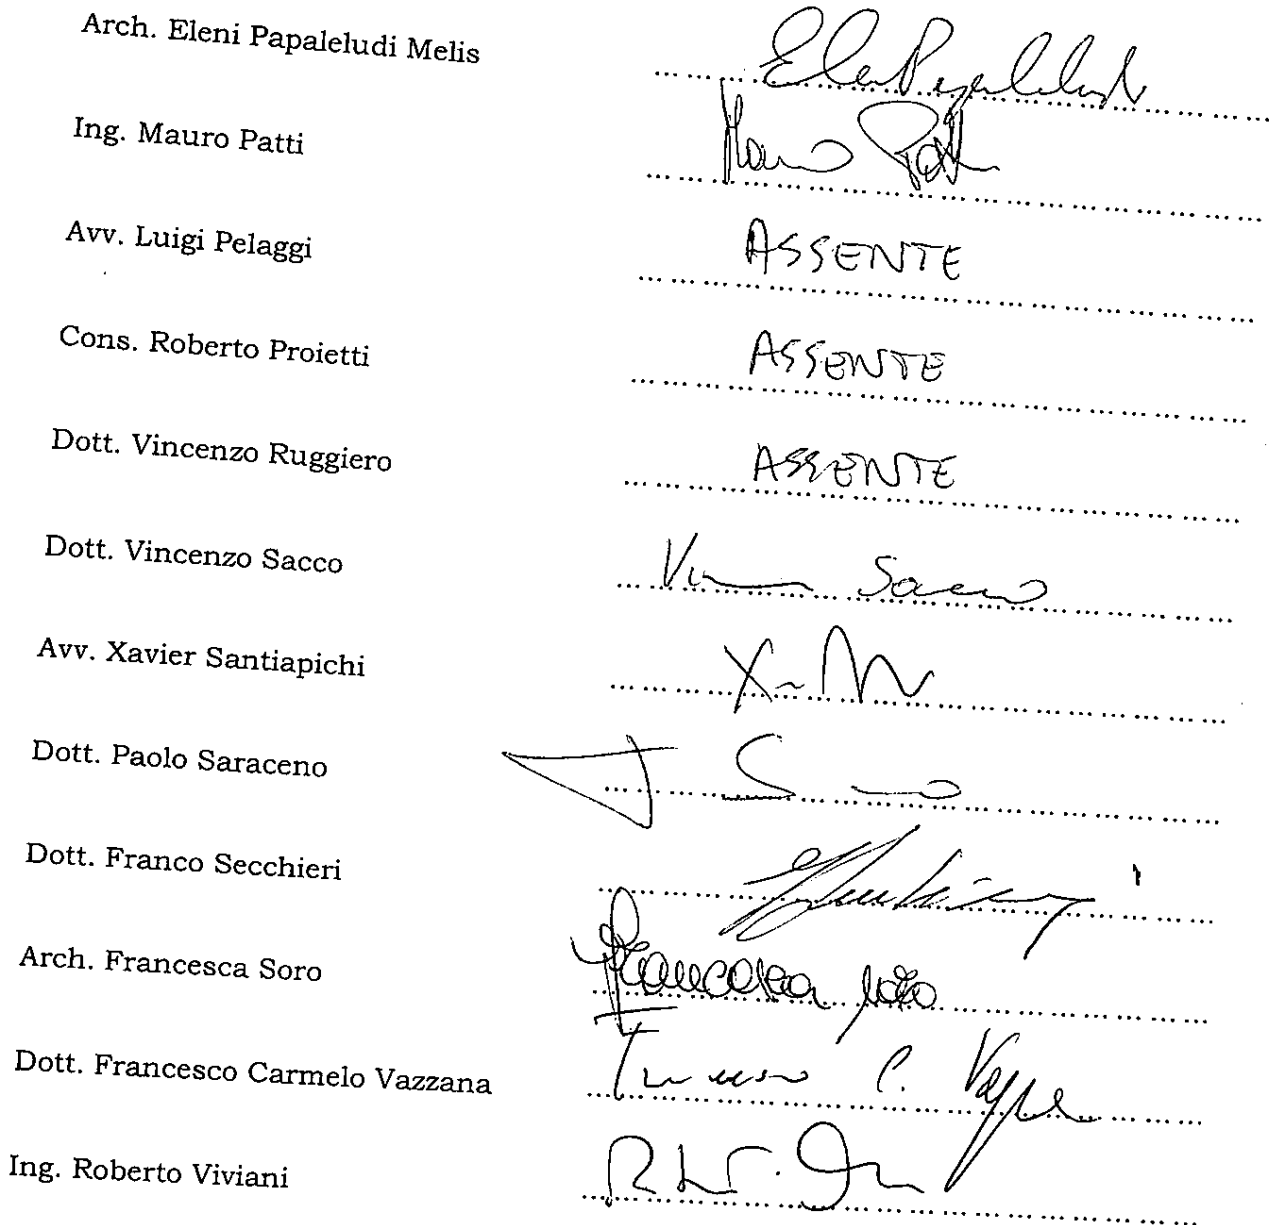 Arch. Eleni Papaleludi Melis
Ing. Mauro Patti Mauro Patti
Avv. Luigi Pelaggi ASSENTE
Cons. Roberto Proietti ASSENTE
Dott. Vincenzo Ruggiero ASSENTE
Dott. Vincenzo Sacco Sacco
Avv. Xavier Santiapichi
Dott. Paolo Saraceno
Dott. Franco Secchieri
Arch. Francesca Soro Francesca Soro
Dott. Francesco Carmelo Vazzana
Ing. Roberto Viviani